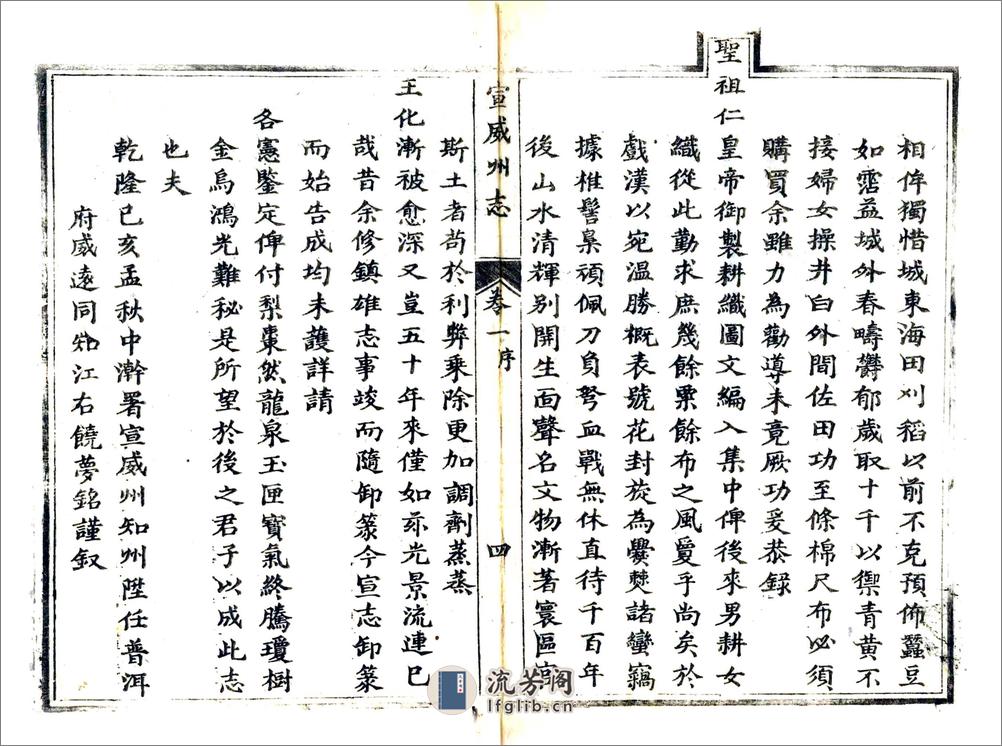 相侔獨惜城東海田刈稻以前不克預佈蠶豆
如霑益城外春疇鬱郁歲取十千以禦青黃不
接婦女操井臼外間佐田功至條棉尺布必須
購買余雖力為勸導未竟厥功爰恭錄
聖祖仁皇帝御製耕織圖文編入集中俾後來男耕女
織從此勤求庶幾餘粟餘布之風夐乎尚矣於
戲漢以宛溫勝概表號花封旋為爨僰諸蠻竊
據椎髻裊頑佩刀負弩血戰無休直待千百年
後山水清輝別開生面聲名文物漸著寰區官
宣威州志
卷一序
四
斯土者苟於利弊乘除更加調劑蒸蒸
王化漸被愈深又豈五十年來僅如茲光景流連已
哉昔余修鎮雄志事竣而隨卸篆今宣志卸篆
而始告成均未護詳請
各憲鑒定俾付梨棗然龍泉玉匣寶氣終騰瓊樹
金烏鴻光難秘是所望於後之君子以成此志
也夫
乾隆己亥孟秋中澣署宣威州知州陞任普洱
府威遠同知江右饒夢銘謹叙
流芳阁
lfglib.cn